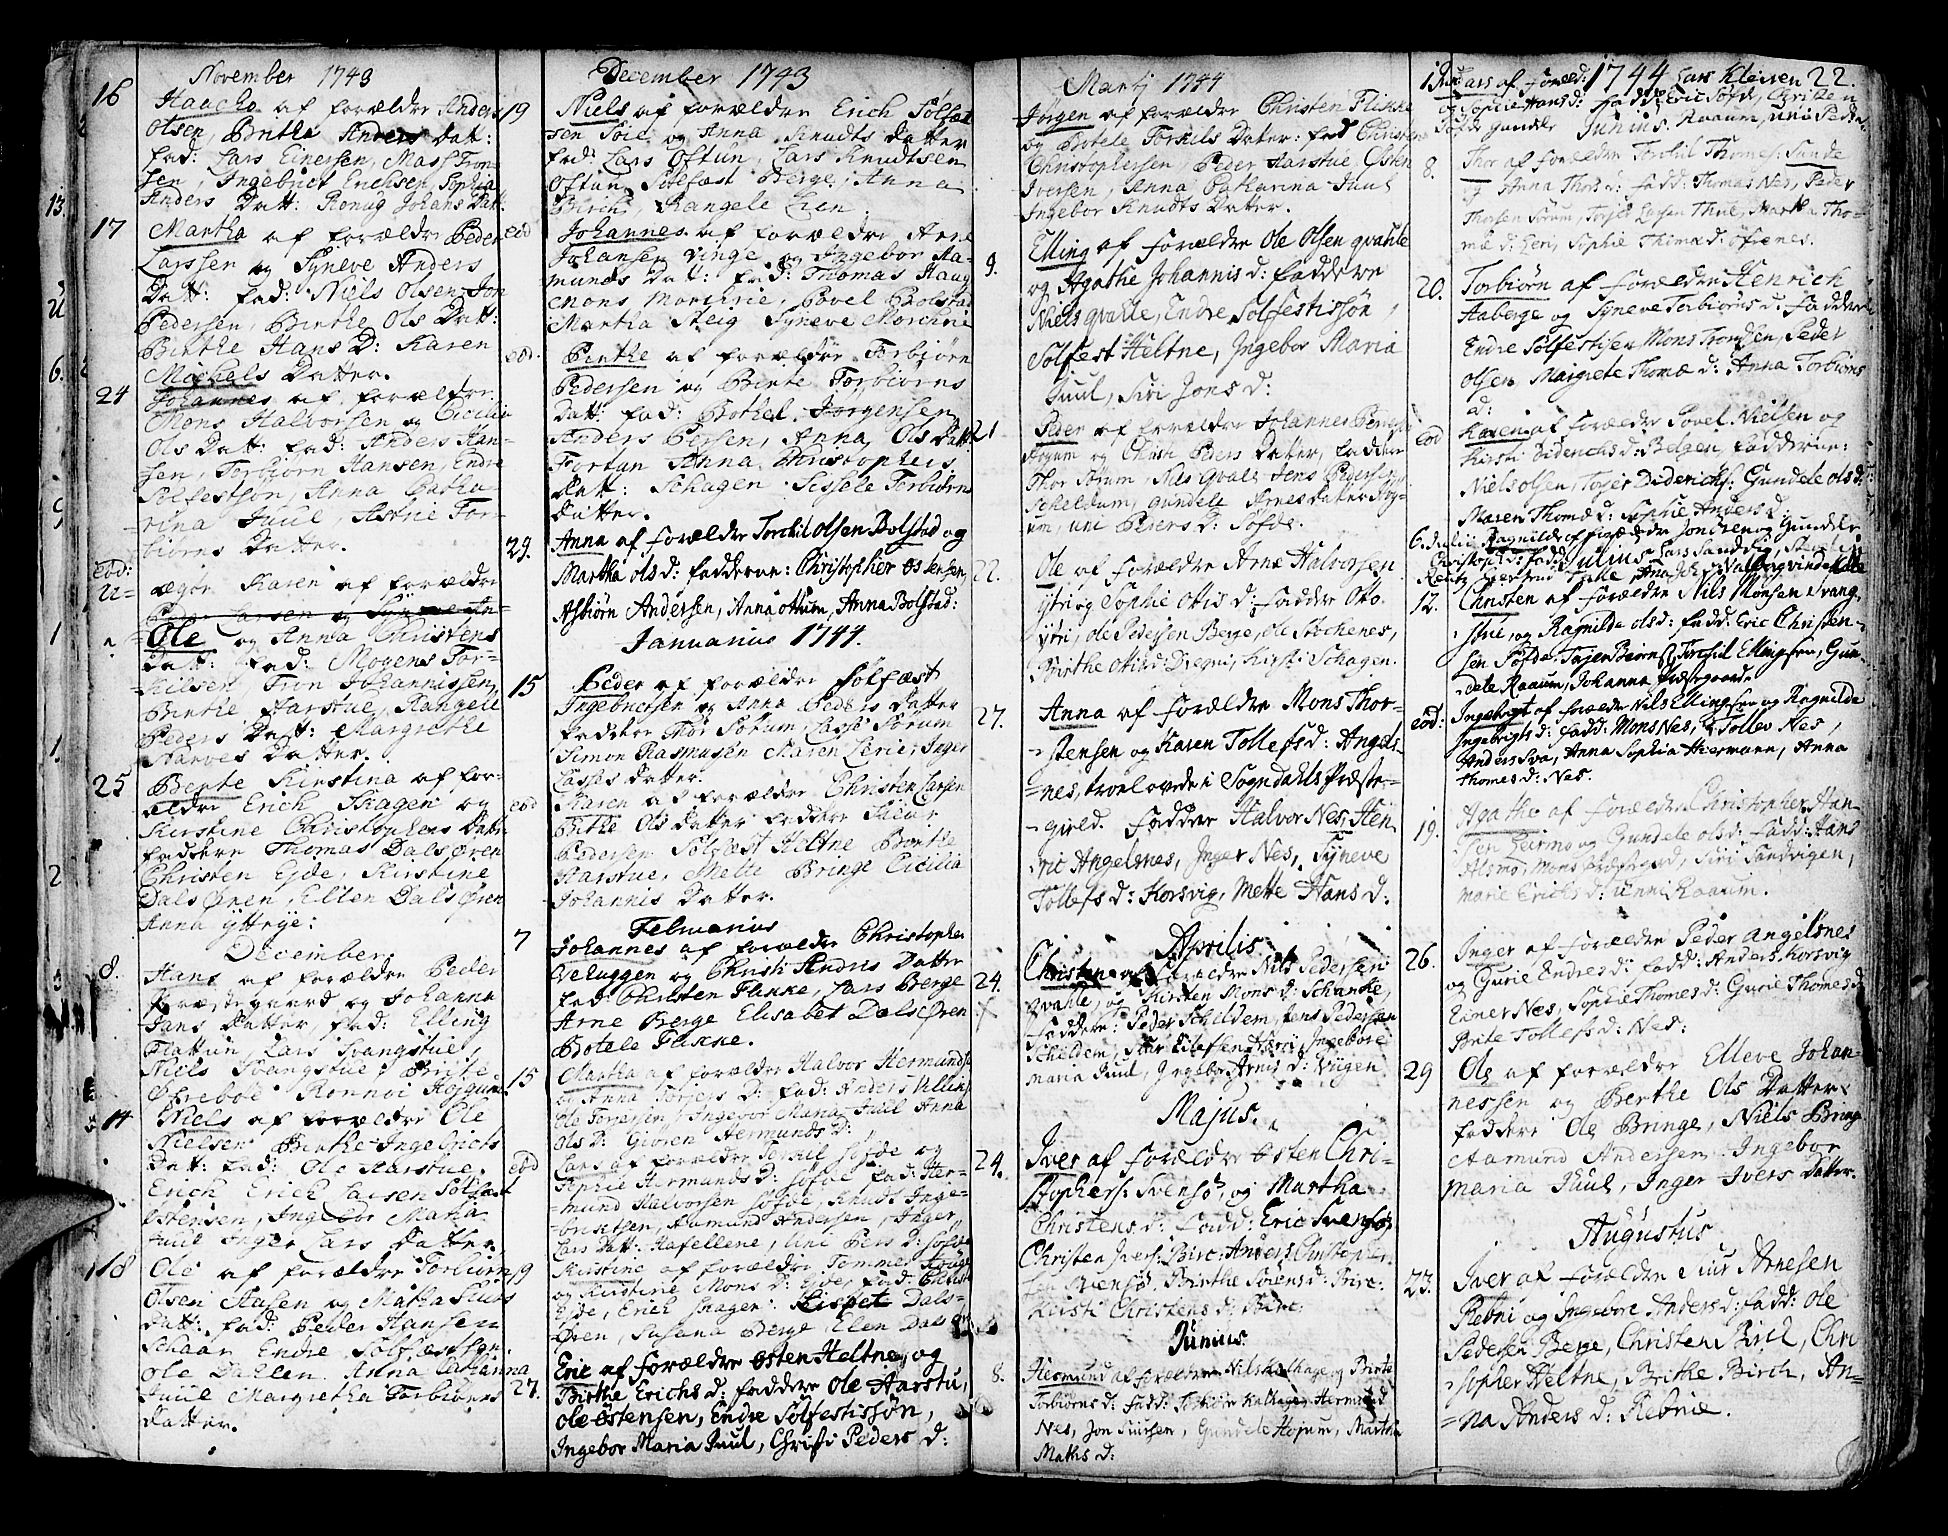 November 1743
16 Haacho af forældre Anders
Olsen, Brithe Anders Datt:
fad: Lars Einersen, Mass Tron-
sen, Ingebrict Erichsen, Sophia
Anders Datt: Ronug Johans Datt.
17 Martha af forældre Peder
Larssen og Syneve Anders
Datt: fad: Niels Olsen, Jon
Pedersen, Birthe Ols Datt:
Birthe Hans D: Karen
Mochels Datter.
24 Johannes af forældre
Mons Halvorsen og Cicilia
Ols Datt: fad: Anders Han-
sen, Torbiørn Hansen, Endre
Solfestsøn, Anna Catha-
rina Juul, Astrie Tor-
biørns Datter.
eod: ægør Karen af forældre
Peder Larsen og Syneve An-
Ole og Anna Christens
Datt: fad: Mogens Tor-
kilsen, Tron Johannissen,
Birthe Aarstue, Rangele
Peders Datt: Margrethe
Datter.
25 Berte Kirstina af for-
ældre Erich Skagen og
Kirstine Christophers Datt:
faddere Thomas Dalsøren
Christen Eyde, Kirstine
Dalsøren, Ellen Dalsøren
Anna yttrye:
December
8. Hans af forældre Peder
Præstegaard og Johanna
Jans Datter, fad: Elling
Flattun, Lars Svangstue,
Niels Svangstue, Brite
Øfrebøe Ronnoi
Niels af forældre Ole
Nielsen Birthe Ingebricts
Datt: fad: Ole Aarstue.
Erich Erich Larsen Solfæst
Østensen, Ingebor Maria
Juul Inger Lars Datter.
18 Ole af forældre Torbiørn
Olsen Aasen og Martha Siurs
Datt: fad: Peder Hansen
Schaar Endre Solfestsøn.
Ole Dahlen Anna Catharina
Juul Margretha Torbiørns
Datter.
December 1743
19 Niels af forældre Erich Solfæst
sen Soie og Anna Knudts Datter
fad: Lars Oftun, Lars Knudtsen
Oftun Solfæst Berge Anna
Birch, Rangele Lien.
eod Johannes af forældre Arne
Johansen Vinge og Ingebor Aa-
munds Datt: fad: Thomas Haug
Mons Morchrie, Povel Bolstad
Martha Steig Syneve Morchrie
eod. Birthe af forældre Torbiørn
Pedersen og Birte Torbiørns
Datt: fad: Bothel Jørgensen
Anders Persen, Anna Ols Datt:
Fortun Anna Christophers
Datt: Schagen Sessele Torbiørns
Datter.
29. Anna af forældre Torchil Olsen Bolstad og
Martha ols d: fadderne: Christopher Østensen,
Asbiørn Andersen, Anna ottum, Anna Bolstad:
Januarius 1744
15 Peder af forældre Solfæst
Ingebricsen og Anna Peders Datter
faddere Thor Sørum Lasse Sørum
Simon Rasmusen Maren Lerie Inger
Lasses Datter.
eod Karen af forældre Christen Larsen
Birthe Ols Datter faddere Siur
Pedersen Solfæst Heltne Birthe
Aarstue, Mette Bringe Cicilia
Johannis Datter.
Februarius
7 Johannes af forældre Christopher
Veluggen og Christi Andris Datter
fad: Christen Flikke, Lars Berge
Arne Berge Elisabet Dalsøren
Botele Flikke.
15 Martha af forældre Halvor Hermunds:
og Anna Torjers D: fad: Anders
Ole Torjersen, Ingebor Maria Juul Anna
Ols D: Giøren Hermunds D:
eod Lars af forældre Torkil Søfde og
Sophie Hermunds D: Søfde fad: Her-
mund Halvorsen Søfde, Knudt Inge-
brictsen, Aamund Andersen, Inger
Lars Datt: Hafellene, Uni Pers D: Søfde
19 Kirstine af forældre Tommes
og Kirstine Mons D: Eyde, fad: Christ:
Eyde, Erich Skagen Lispet Dals-
øren, Susana Berge, Elen Dals
27. Eric af forældre Østen Heltne, og
Birthe Erichs d: faddere Ole Aarstu,
ole Østensen, Endre Solfestissøn,
Ingebor Maria Juul, Christi Peders d:
Martj 1744
Jørgen af forældre Christen Flikke
og Botele Torkils Datter: fad Christen
Christophersen Peder Aarstue Østen
Iversen, Anna Catharina Juul
Ingebor Knudts Datter.
9. Elling af forældre Ole Olsen qvahle
og Agathe Johannis d: faddere
Niels qvahle, Endre Solfestissøn,
Solfest Heltne, Ingebor Maria
Juul, Siri Jons d:
21 Peder af forældre Johannes
og Christi Peders Datter, faddere
Thor Sørum, Nils Qvale, Jens Pedersen
Scheldum, gundele Datter
uni Peders d: Søfde.
22. Ole af forældre Arne Halvorsen
ytri og Sophie Ottis d: fadder Oto
ytri, Ole Pedersen Berge, Ole Støchenes,
Birthe Ottis d: Kirsti Schagen.
27. Anna af forældre Mons Thor-
stensen og Karen Tollefs d: Angels-
nes, trolovede i Sogndahls Præste-
gield. fadder Halvor Nes, Hen-
ric Angelsnes, Inger Nes, Syneve
Tollefs d: Korsvig, Mette Hans d:
Aprilis
24. Christen af forældre Nils Pedersen
Qvahle, og Kirsten Mons d: Schanke,
faddere: Peder Scheldem, Jens Pedersen
Scheldem, Siur Ellefsen Ingebore
maria Juul, Ingebor Arnis d:
Majus.
24. Iver af forældre Østen Chri-
stophers: Svensø, og Martha
Christens d: fadd: Eric Svensø,
Christen Ivers: Birc, Anders Christopher-
sen Svensø. Birthe Sørens d:
Kirsti Christens d: Birc
Junius
8. Hermund af forældre Nils Kalhage og Birte
Torbiørns d: fadd: Torbiørn Kalhage Hermund
Nes, Jon Siursen, Gundele Høium, Martha
Mathis d:
Lars af foræld: 1744 Lars Kleiven 22.
og Sophie Hans d: fadd: Eric Søfde, Christen
Søfde Gundele Junius. Raaum, uni Peders d:
8. Thor af forældre Torchil Thomes: Sande
og Anna Thors d: fadd: Thomas Nes, Peder
Thorsen Sørum, Torjer Larsen Thue, Martha Tho-
mæ d: Len, Sophie Thomæ d: Øfrenes.
20. Torbiørn af forældre Henrick
Aaberge og Syneve Torbiørns d: faddere
Endre Solfestisøn Mons Trondsen, Peder
Olsen Margrete Thomæ d: Anna Torbiørns
d:
eod Karen af forældre Povel Nielsen og
Kirsti Diderichs d: Bolgen, fadderne:
Niels olsen, Torjer Diderichs: Gundele ols d:
Maren Thomæ d: Sophie Anders d:
6. Julii Ragnilde af forældre Jon og Gundele
Christophers d: fadd: Julius Lars Sandvig,
12. Christen af forældre Nils Monsen Svang-
stue, og Ragnilda ols d: fadd: Eric Christen-
sen Søfde, Torchil Ellingsen, Gun-
dele Raaum, Johanna Præstegaard.
eod: Ingebrigt af forældre Nils Ellingsen og Ragnilde
Ingebrigts d: fadd: Mons Nes, Tollev Nes,
Anders Sva, Anna Sophia Hiermann, Anna
Thomes d: Nes.
19. Agathe af forældre Christopher Han-
sen og Gundele ols d: fadd: Hans
Alsmo, Mons Præstegrd, Siri Sandvigen,
Marie Erichs d: Unni Raaum.
26. Inger af forældre Peder Angelsnes
og Gurie Endres d: fadd: Anders Korsvig
Einer Nes, Sophie Thomes d: Gurie Thomes d
Brite Tollefs d: Nes:
29 Ole af forældre Elleve Johan-
nessen og Berthe Ols Datter
faddere Ole Bringe, Niels Bringe
Aamund Andersen Ingebor
Maria Juul, Inger Ivers Datter.
Augustus
23. Iver af forældre Siur Arnesen
Rebni og Ingebore Anders d: fadd: Ole
Pedersen Berge, Christen Birch, Chri-
stopher Heltne, Brithe Birch, An-
na Anders d: Rebnie.